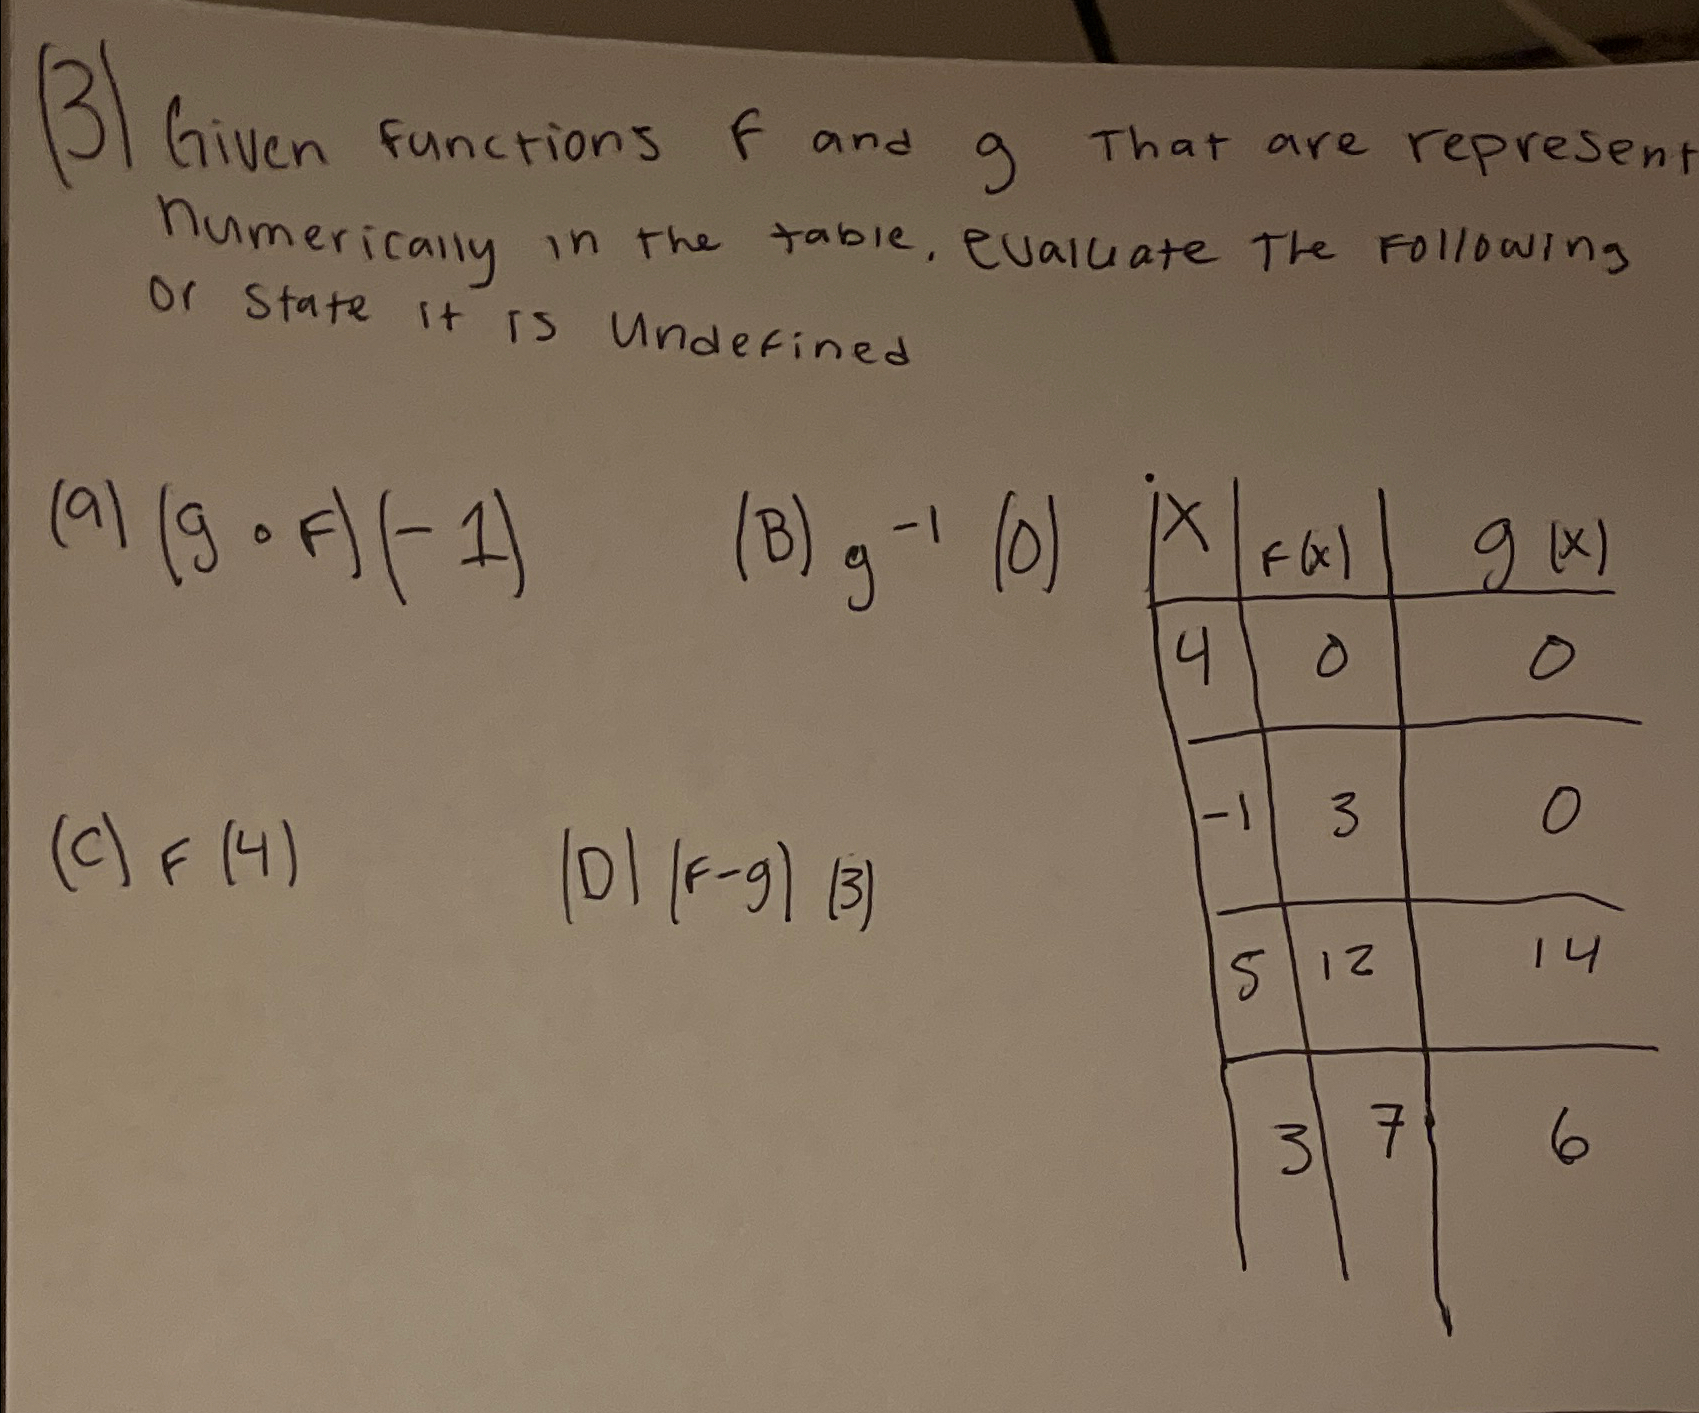 (3) Given functions f and g That are represent
numerically in the table, evaluate The Following
or State it is Undefined
(a) (g ∘ F)(-1)
(B) g⁻¹ (0)
x F(x) g(x)
4 0 0
-1 3 0
5 12 14
3 7 6
(C) F (4)
(D) (F-g) (3)